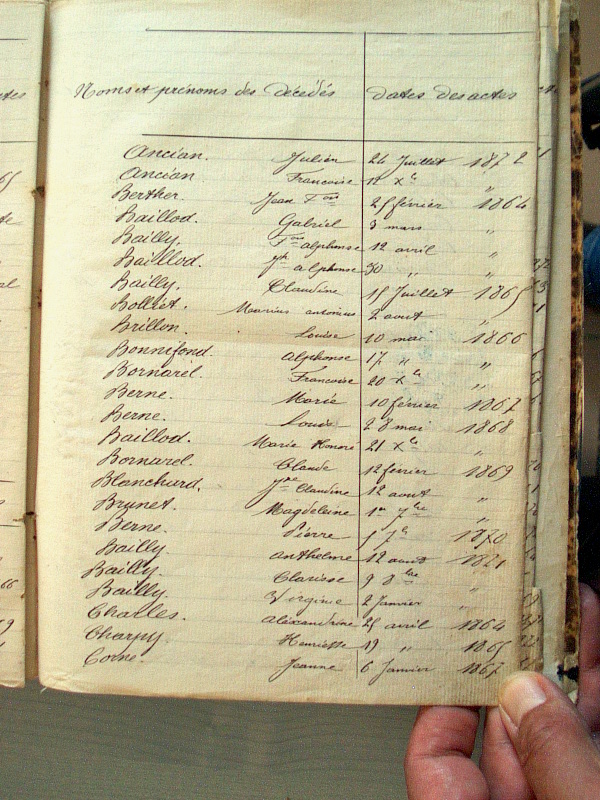 Noms et prénoms des décédés dates des actes
Ancian. Julien 24 Juillet 1872
Ancian Francoise 12 Xbe "
Berther. Jean Fois 25 février 1864
Baillod. Gabriel 3 mars "
Bailly. Fois alphonse 12 avril "
Bailllod. Jh alphonse 30 " "
Bailly. Claudine 15 Juillet 1865
Bolliet. Marius antonius 2 aout "
Brillon. Louise 10 mai 1866
Bonnifond. alphonse 17 " "
Bornarel. Francoise 20 Xbe "
Berne. Marie 10 février 1867
Berne. Louis 28 mai 1868
Baillod. Marie Honoré 21 Xbe "
Bornarel. Claude 12 février 1869
Blanchard. Claudine 12 aout "
Brunet. Magdeleine 1er 7bre "
Berne. Pierre 1870
Bailly. anthelme 12 aout 1871
Bailly. Clarisse 9 8bre "
Bailly. Virginie 2 Janvier "
Charles. alexandrine 25 avril 1864
Charpy Henriette 19 " 1865
Corne. Jeanne 6 Janvier 1867